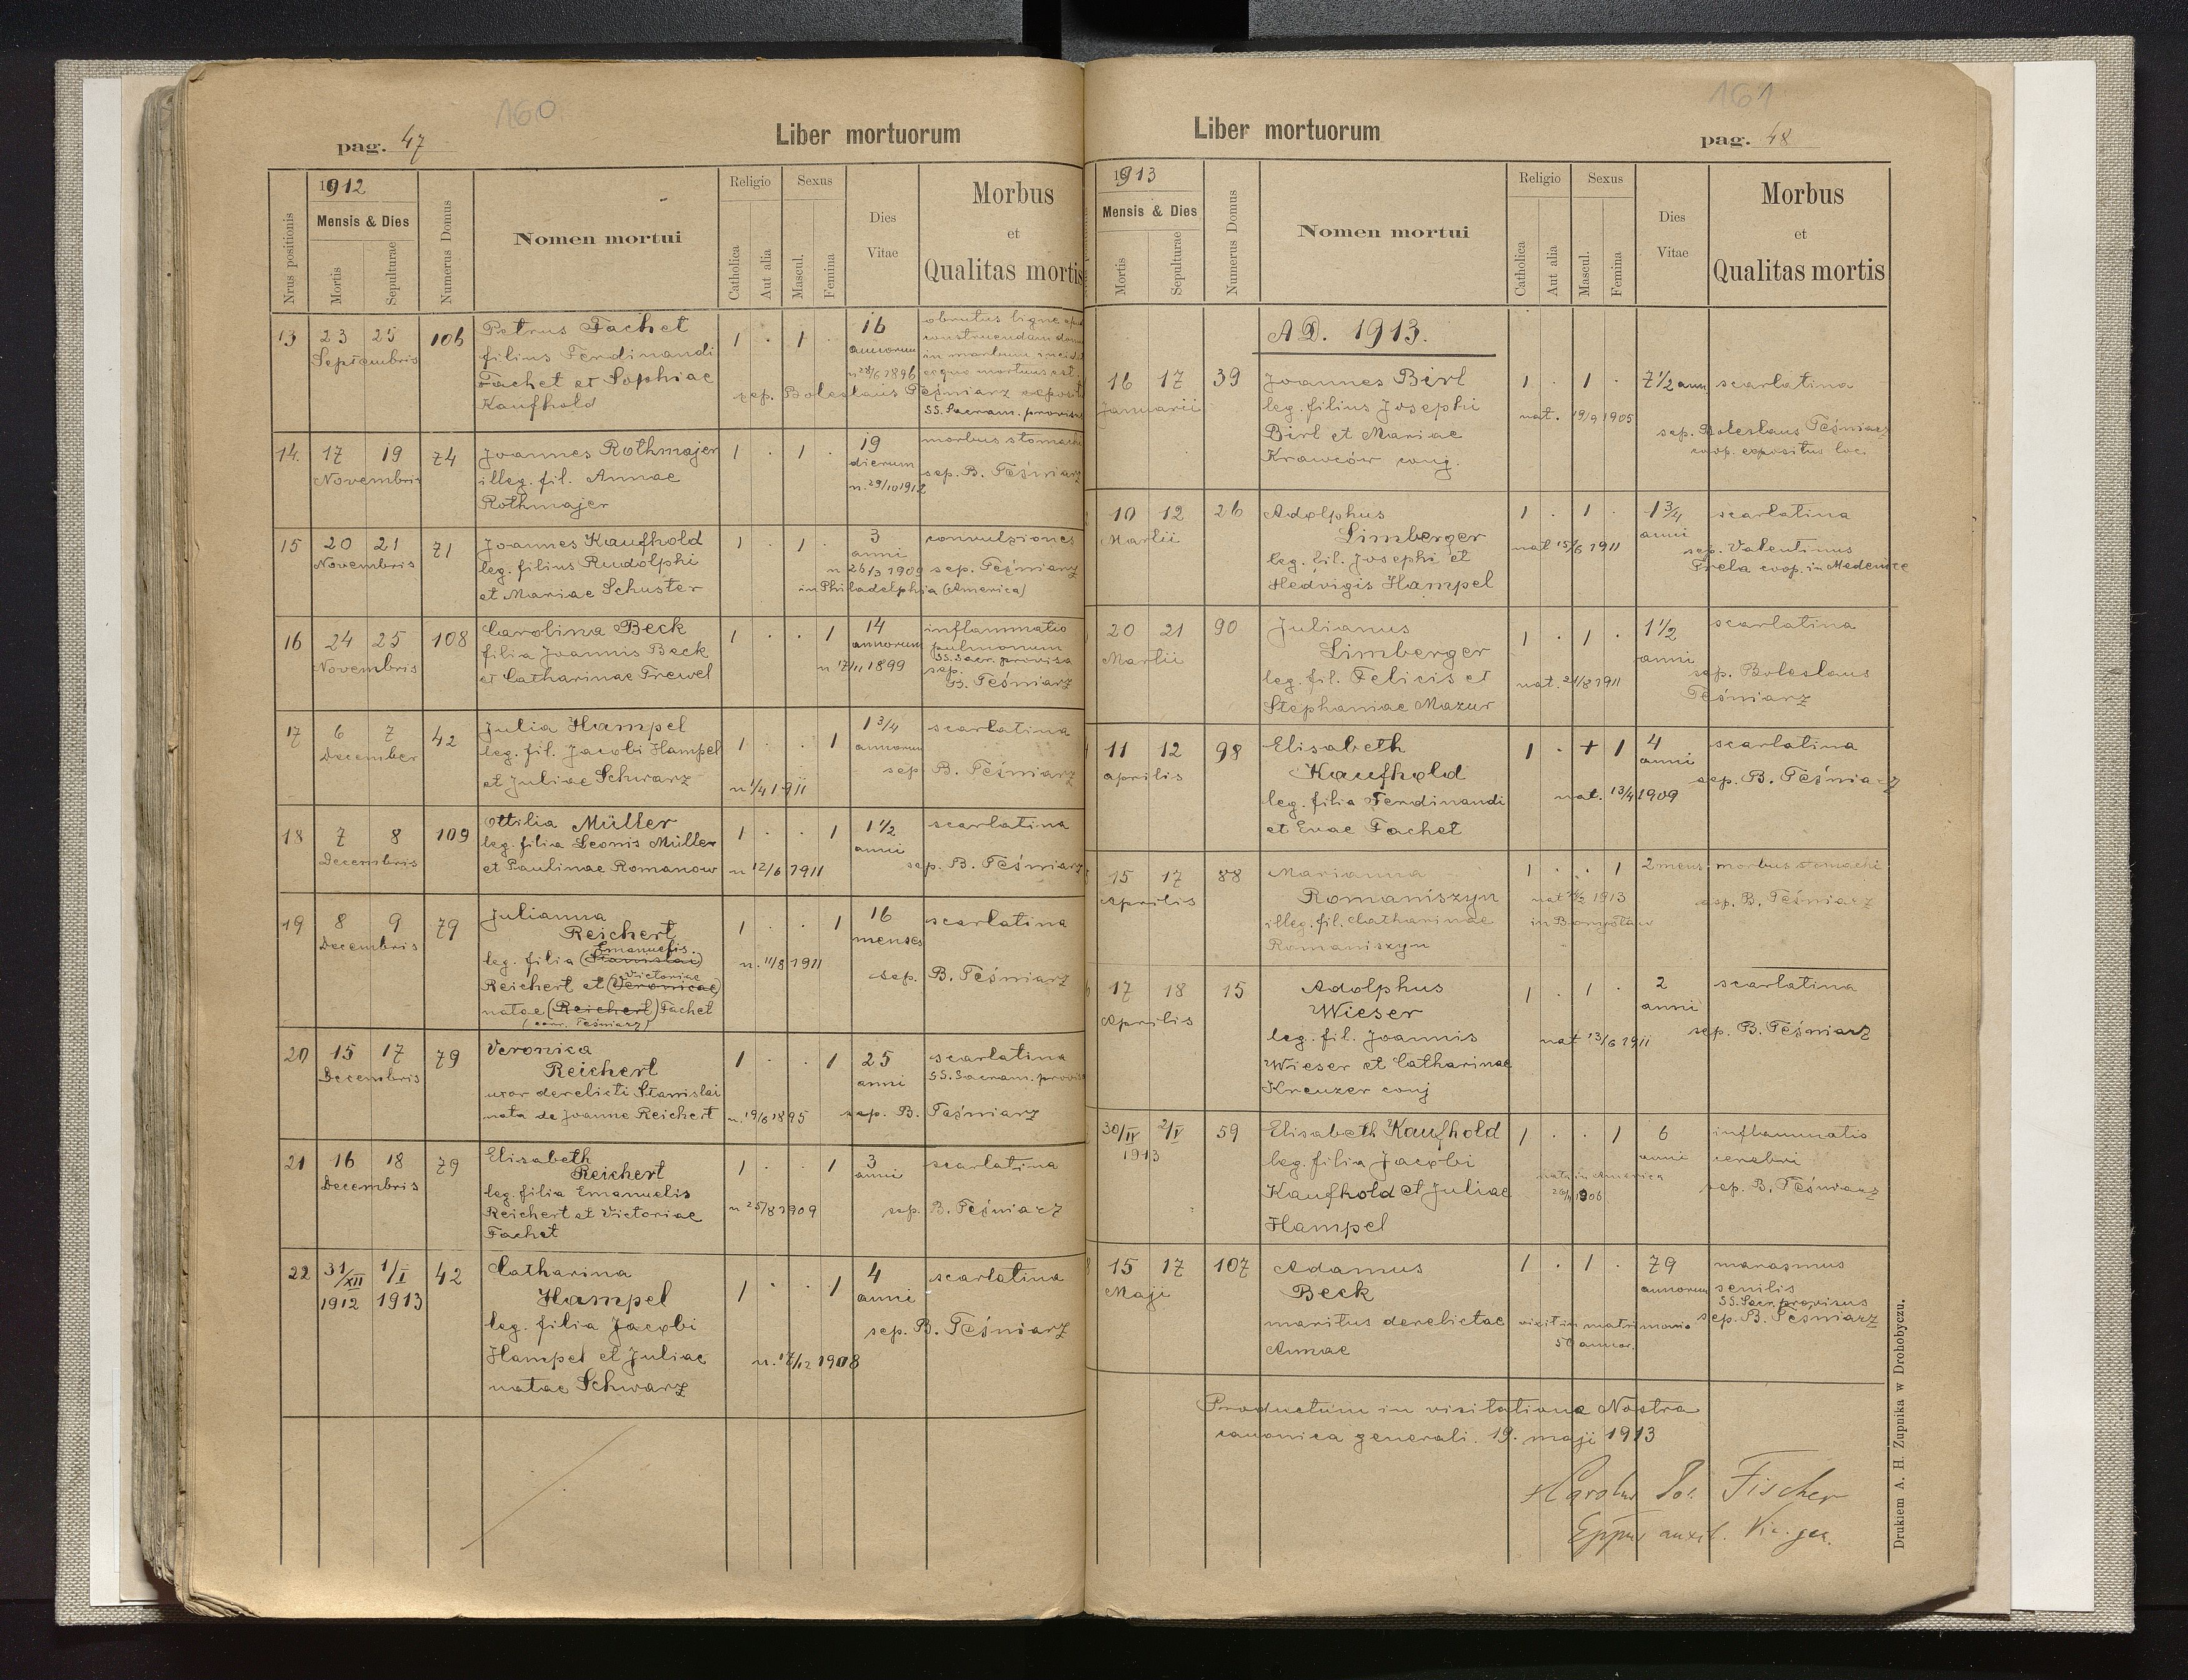 160
pag. 47
Liber mortuorum
Nrus positionis
1912
Mensis & Dies
Mortis
Sepulturae
Numerus Domus
Nomen mortui
Religio
Catholica
Aut alia
Sexus
Mascul.
Femina
Dies
Vitae
Morbus
et
Qualitas mortis
13 23 25 106 Petrus Fachet 1 . 1 . 16 obrutus ligne
Septembris filius Ferdinandi annorum construendam
Fachet et Sophiae n 28/6 1896 in morbum
Kaufhold eoque mortuus est.
sep. Boleslaus Teśniarz
SS. Sacram.
14. 17 19 74 Joannes Rothmajer 1 . 1 . 19 morbus
Novembris illeg. fil. Annae dierum sep. B. Teśniarz
Rothmajer n. 29/10 1912
15 20 21 71 Joannes Kaufhold 1 . 1 . 3 convulsiones
Novembris leg. filius Rudolphi anni
et Mariae Schuster n 26/3 1909 sep. Teśniarz
in Philadelphia (America)
16 24 25 108 Carolina Beck 1 . . 1 14 inflammatio
Novembris filia Joannis Beck annorum pulmonum
et Catharinae Trewel n 17/11 1899 SS. Sacr. provisa
sep.
B. Teśniarz
17 6 7 42 Julia Hampel 1 . . 1 1 3/4 scarlatina
December leg. fil. Jacobi Hampel annorum
et Juliae Schwarz n 1/4 1911 sep B. Teśniarz
18 7 8 109 Ottilia Müller 1 . . 1 1 1/2 scarlatina
Decembris leg. filia Leonis Müller anni
et Paulinae Romanow n 12/6 1911 sep. B. Teśniarz
19 8 9 79 Julianna 1 . . 1 16 scarlatina
Decembris Reichert menses
Emanuelis
leg. filia (Stanislai) n. 11/8 1911
Victoriae
Reichert et (Veronicae) sep. B. Teśniarz
natae (Reichert) Fachet
Teśniarz)
20 15 17 79 Veronica 1 . . 1 25 scarlatina
Decembris Reichert anni SS. Sacram.
uxor derelicti Stanislai
nata de Joanne Reichert n. 19/6 1895 sep. B. Teśniarz
21 16 18 79 Elisabeth 1 . . 1 3 scarlatina
Decembris Reichert anni
leg. filia Emanuelis
Reichert et Victoriae n 25/8 1909 sep. B. Teśniarz
Fachet
22 31/XII 1/I 42 Catharina 1 . . 1 4 scarlatina
1912 1913 Hampel anni
leg. filia Jacobi sep. B. Teśniarz
Hampel et Juliae n. 17/12 1908
natae Schwarz
161
Liber mortuorum
pag. 48
1913
Mensis & Dies
Mortis
Sepulturae
Numerus Domus
Nomen mortui
Religio
Catholica
Aut alia
Sexus
Mascul.
Femina
Dies
Vitae
Morbus
et
Qualitas mortis
AD. 1913.
16 17 39 Joannes Birl 1 . 1 . 7 1/2 ann. scarlatina
Januarii leg. filius Josephi nat. 19/9 1905
Birl et Mariae sep. Boleslaus Teśniarz
Krawców conj. coop. expositus loc.
10 12 26 Adolphus 1 . 1 . 1 3/4 scarlatina
Martii Limberger anni
leg. fil. Josephi et nat 15/6 1911 sep. Valentinus
Hedvigis Hampel Prela coop. in Medenice
20 21 90 Julianus 1 . 1 . 1 1/2 scarlatina
Martii Limberger anni
leg. fil. Felicis et nat. 21/8 1911 sep. Boleslaus
Stephaniae Mazur Teśniarz
11 12 98 Elisabeth 1 . + 1 4 scarlatina
aprilis Kaufhold anni sep. B. Teśniarz
leg. filia Ferdinandi nat. 13/4 1909
et Evae Fachet
15 17 88 Marianna 1 . . 1 2 mens. morbus stomachi
Aprilis Romaniszyn 1913 sep. B. Teśniarz
illeg. fil. Catharinae in
Romaniszyn
17 18 15 Adolphus 1 . 1 . 2 scarlatina
Aprilis Wieser anni
leg. fil. Joannis nat 13/6 1911 sep. B. Teśniarz
Wieser et Catharinae
Kreuzer conj
30/IV 2/V 59 Elisabeth Kaufhold 1 . . 1 6 inflammatio
1913 leg. filia Jacobi anni cerebri
Kaufhold et Juliae nata in America 1906 sep. B. Teśniarz
Hampel
15 17 107 Adamus 1 . 1 . 79 marasmus
Maji Beck annorum senilis
SS. Sacr. provisus
maritus derelictae vixit in matrimonio sep. B. Teśniarz
Annae 50 annor.
Productum in visitatione Nostra
canonica generali. 19. maji 1913
Karolus Jos. Fischer
Eppus auxil. Vic. gen.
Drukiem A. H. Zupnika w Drohobyczu.